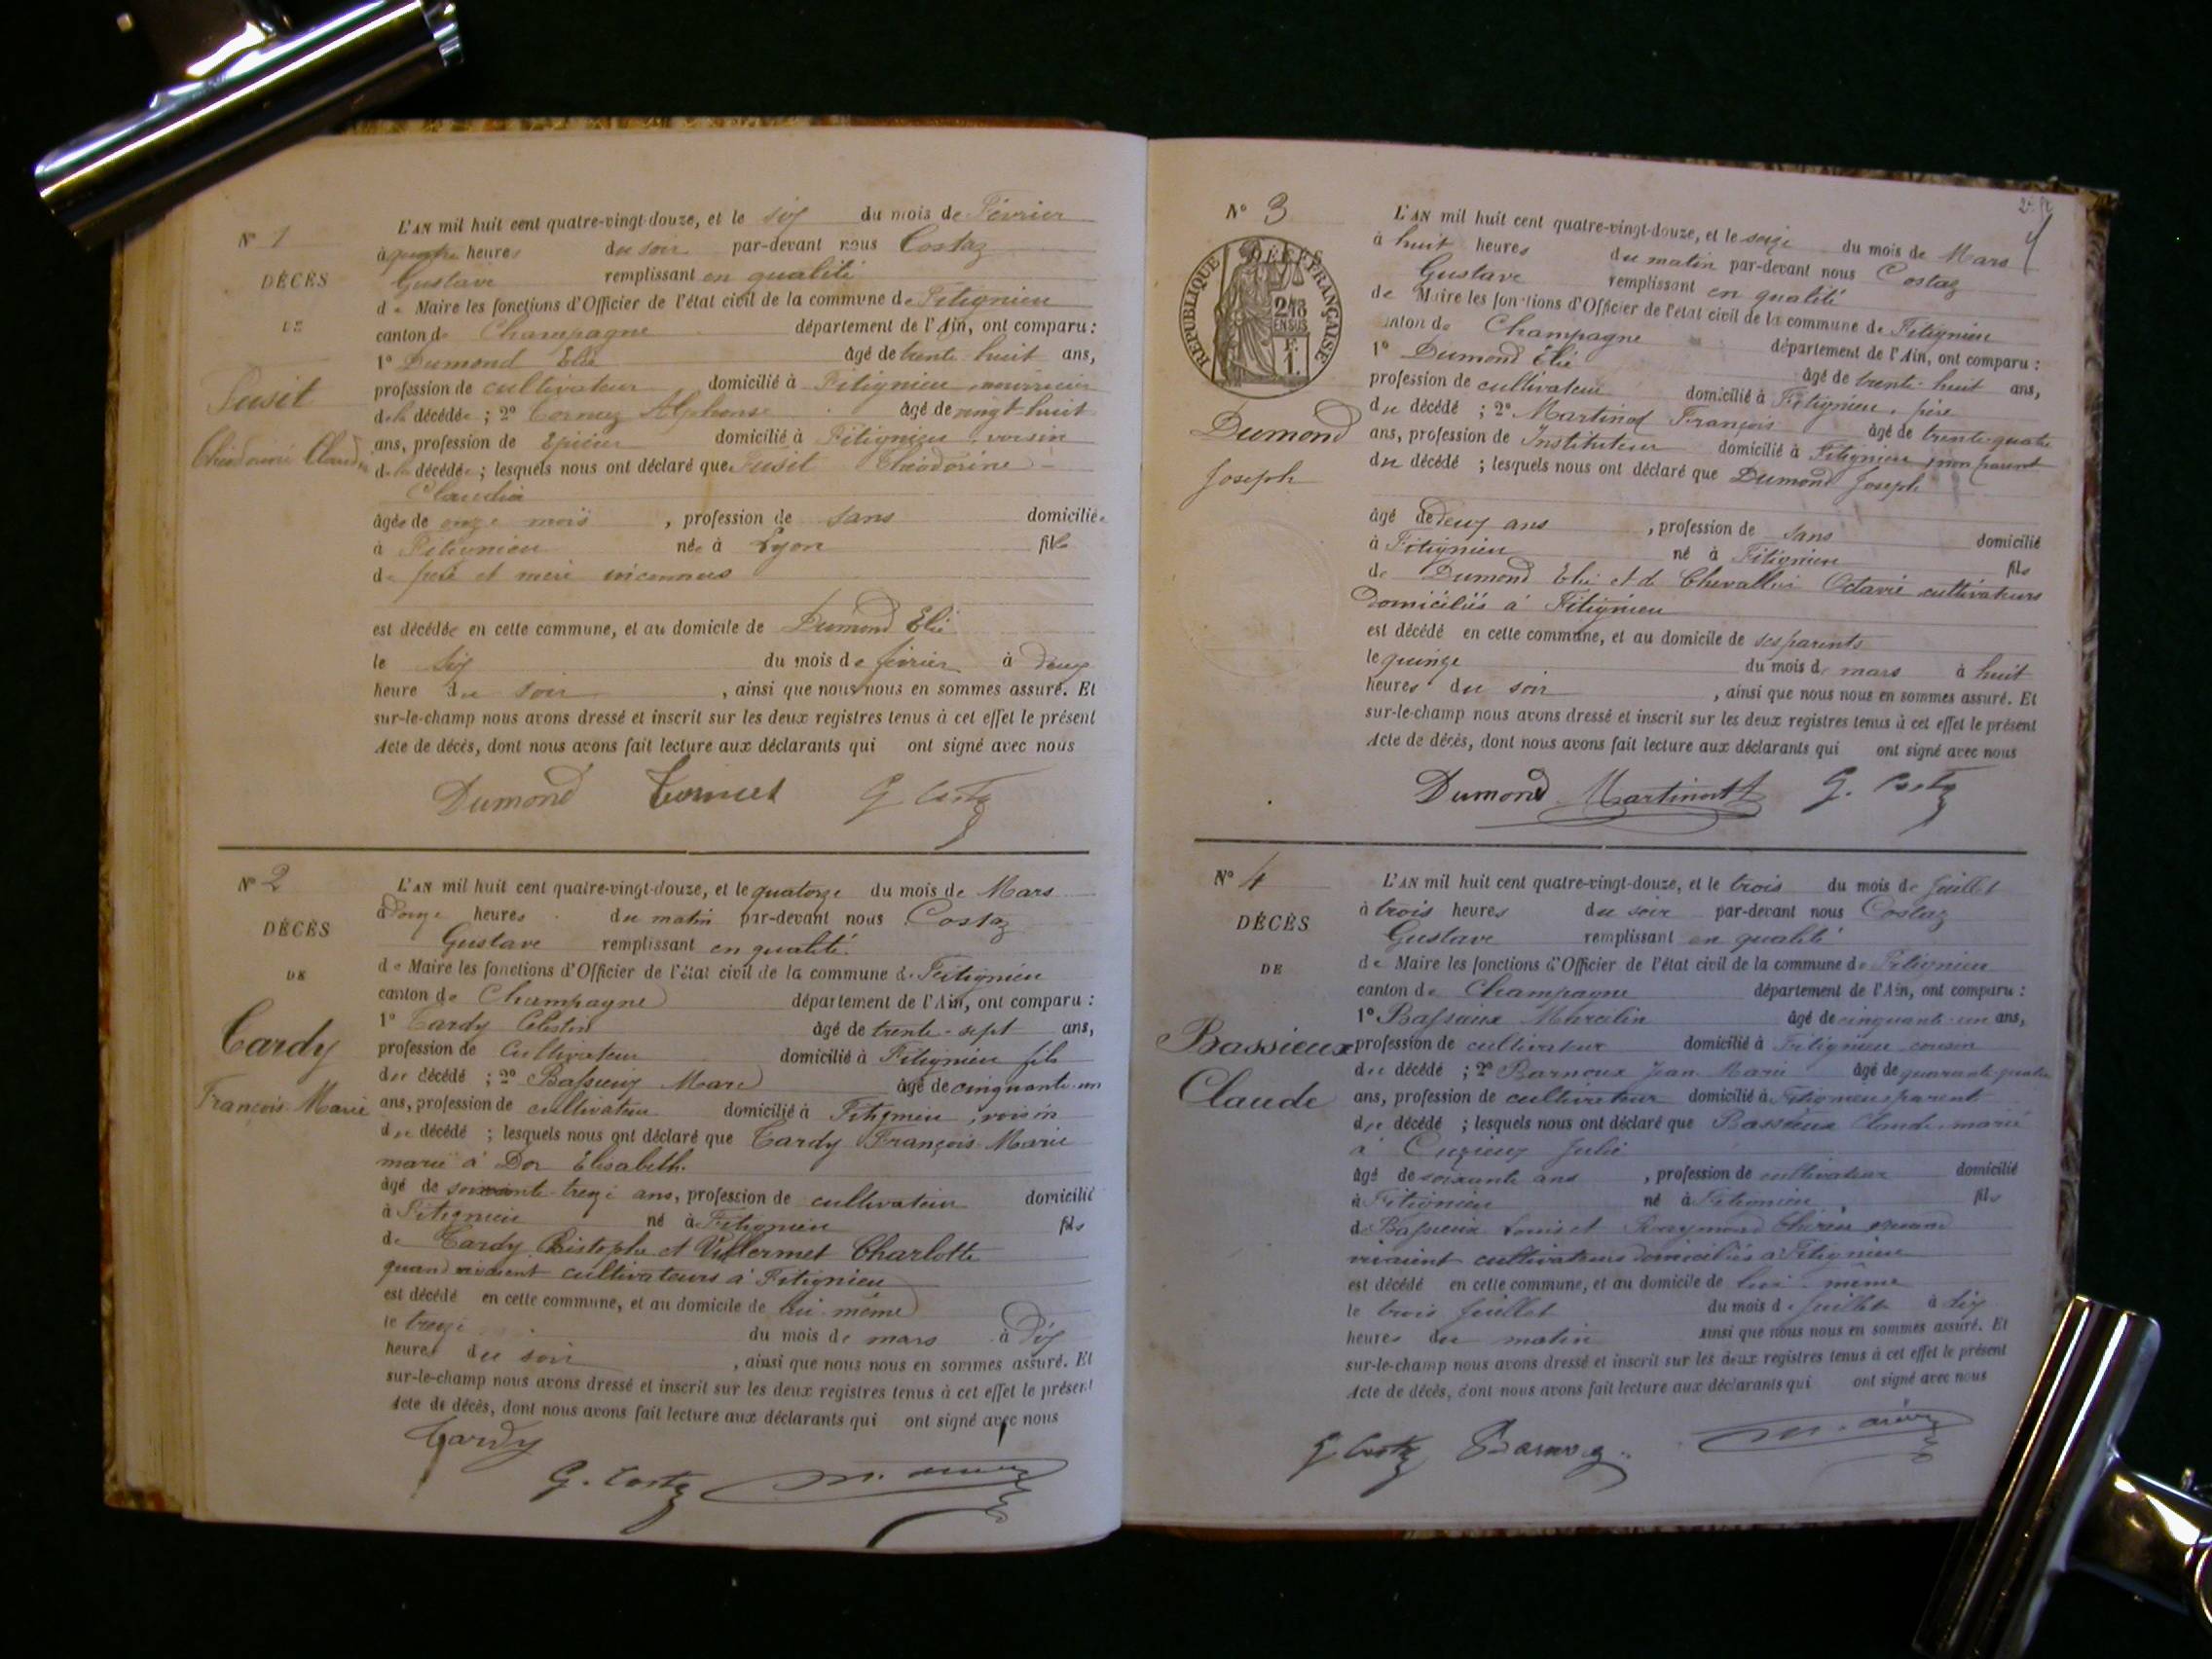 N° 1
DÉCÈS
DE
Fusit
Théodorine Claudia
L'AN mil huit cent quatre-vingt-douze, et le six du mois de Février
à quatre heures du soir par-devant nous Costaz
Gustave remplissant en qualité
de Maire les fonctions d'Officier de l'état civil de la commune de Fitignieu
canton de Champagne département de l'Ain, ont comparu :
1° Dumond Elie âgé de trente-huit ans,
profession de cultivateur domicilié à Fitignieu nourricier
de la décédée ; 2° Alphonse âgé de vingt-huit
ans, profession de Epicier domicilié à Fitignieu, voisin
de la décédée ; lesquels nous ont déclaré que Fusit Théodorine
Claudia
âgée de onze mois , profession de sans domiciliée
à Fitignieu née à Lyon fille
de père et mère inconnus
est décédée en cette commune, et au domicile de Dumond Elie
le six du mois de février à deux
heure du soir , ainsi que nous nous en sommes assuré. Et
sur-le-champ nous avons dressé et inscrit sur les deux registres tenus à cet effet le présent
Acte de décès, dont nous avons fait lecture aux déclarants qui ont signé avec nous
Dumond G Costaz
N° 2
DÉCÈS
DE
Tardy
François-Marie
L'AN mil huit cent quatre-vingt-douze, et le quatorze du mois de Mars
à onze heures du matin par-devant nous Costaz
Gustave remplissant en qualité
de Maire les fonctions d'Officier de l'état civil de la commune de Fitignieu
canton de Champagne département de l'Ain, ont comparu :
1° Tardy Célestin âgé de trente-sept ans,
profession de cultivateur domicilié à Fitignieu fils
du décédé ; 2° Bassieux Marc âgé de cinquante-un
ans, profession de cultivateur domicilié à Fitignieu, voisin
du décédé ; lesquels nous ont déclaré que Tardy François-Marie
marié à Dor Elisabeth.
âgé de soixante-treize ans, profession de cultivateur domicilié
à Fitignieu né à Fitignieu fils
de Tardy Christophe et Vullermet Charlotte
quand vivaient cultivateurs à Fitignieu
est décédé en cette commune, et au domicile de lui-même
le treize du mois de mars à dix
heures du soir , ainsi que nous nous en sommes assuré. Et
sur-le-champ nous avons dressé et inscrit sur les deux registres tenus à cet effet le présent
Acte de décès, dont nous avons fait lecture aux déclarants qui ont signé avec nous
Tardy
G. Costaz
N° 3
RÉPUBLIQUE FRANÇAISE
2/10 EN SUS
F. 1.
Dumond
Joseph
L'AN mil huit cent quatre-vingt-douze, et le seize du mois de Mars
à huit heures du matin par-devant nous Costaz
Gustave remplissant en qualité
de Maire les fonctions d'Officier de l'état civil de la commune de Fitignieu
canton de Champagne département de l'Ain, ont comparu :
1° Dumond Elie âgé de trente-huit ans,
profession de cultivateur domicilié à Fitignieu, père
du décédé ; 2° Martinod François âgé de trente-quatre
ans, profession de Instituteur domicilié à Fitignieu, non parent
du décédé ; lesquels nous ont déclaré que Dumond Joseph
âgé de deux ans , profession de sans domicilié
à Fitignieu né à Fitignieu fils
de Dumond Elie et de Chevallier Octavie cultivateurs
domiciliés à Fitignieu
est décédé en cette commune, et au domicile de ses parents
le quinze du mois de mars à huit
heures du soir , ainsi que nous nous en sommes assuré. Et
sur-le-champ nous avons dressé et inscrit sur les deux registres tenus à cet effet le présent
Acte de décès, dont nous avons fait lecture aux déclarants qui ont signé avec nous
Dumond G. Costaz
N° 4
DÉCÈS
DE
Bassieux
Claude
L'AN mil huit cent quatre-vingt-douze, et le trois du mois de Juillet
à trois heures du soir par-devant nous Costaz
Gustave remplissant en qualité
de Maire les fonctions d'Officier de l'état civil de la commune de Fitignieu
canton de Champagne département de l'Ain, ont comparu :
1° Bassieux âgé de cinquante-un ans,
profession de cultivateur domicilié à Fitignieu cousin
du décédé ; 2° Barnoux Jean Marie âgé de quarante-quatre
ans, profession de cultivateur domicilié à Fitignieu parent
du décédé ; lesquels nous ont déclaré que Bassieux Claude marié
à Cuzieux Julie
âgé de soixante ans , profession de cultivateur domicilié
à Fitignieu né à Fitignieu fils
de Bassieux Louis et Raymond quand
vivaient cultivateurs domiciliés à Fitignieu
est décédé en cette commune, et au domicile de lui-même
le trois Juillet du mois de juillet à dix
heures du matin ainsi que nous nous en sommes assuré. Et
sur-le-champ nous avons dressé et inscrit sur les deux registres tenus à cet effet le présent
Acte de décès, dont nous avons fait lecture aux déclarants qui ont signé avec nous
G Costaz